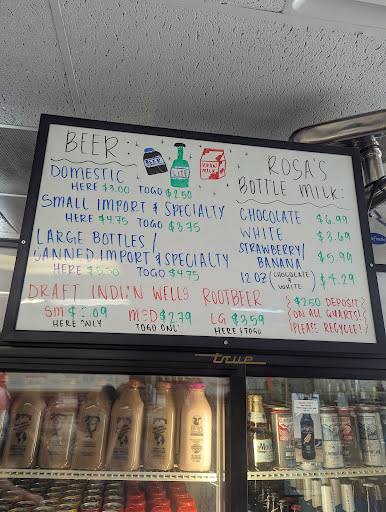 BEER:
DOMESTIC
HERE $3.00 TOGO $2.50
SMALL IMPORT & SPECIALTY
HERE $4.75 TOGO $3.75
LARGE BOTTLES/
CANNED IMPORT & SPECIALTY
HERE TOGO $4.75
DRAFT INDIAN WELLS ROOTBEER
SM MED $2.79 LG $3.59
HERE ONLY TOGO ONLY HERE & TOGO
ROSA'S
BOTTLE MILK!
CHOCOLATE $6.99
WHITE $3.69
STRAWBERRY/
BANANA $5.99
12 OZ (CHOCOLATE & WHITE) $4.29
$2.50 DEPOSIT
ON ALL QUARTS!
PLEASE RECYCLE!
true